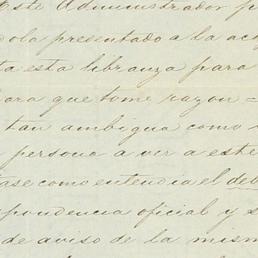 Este Administrador p
dola presentado a la ac
ta esta libranza para
para que tome razon =
tan ambigua como
persona a ver a este
tase como entendia el deb
pondencia oficial y s
de aviso de la mism